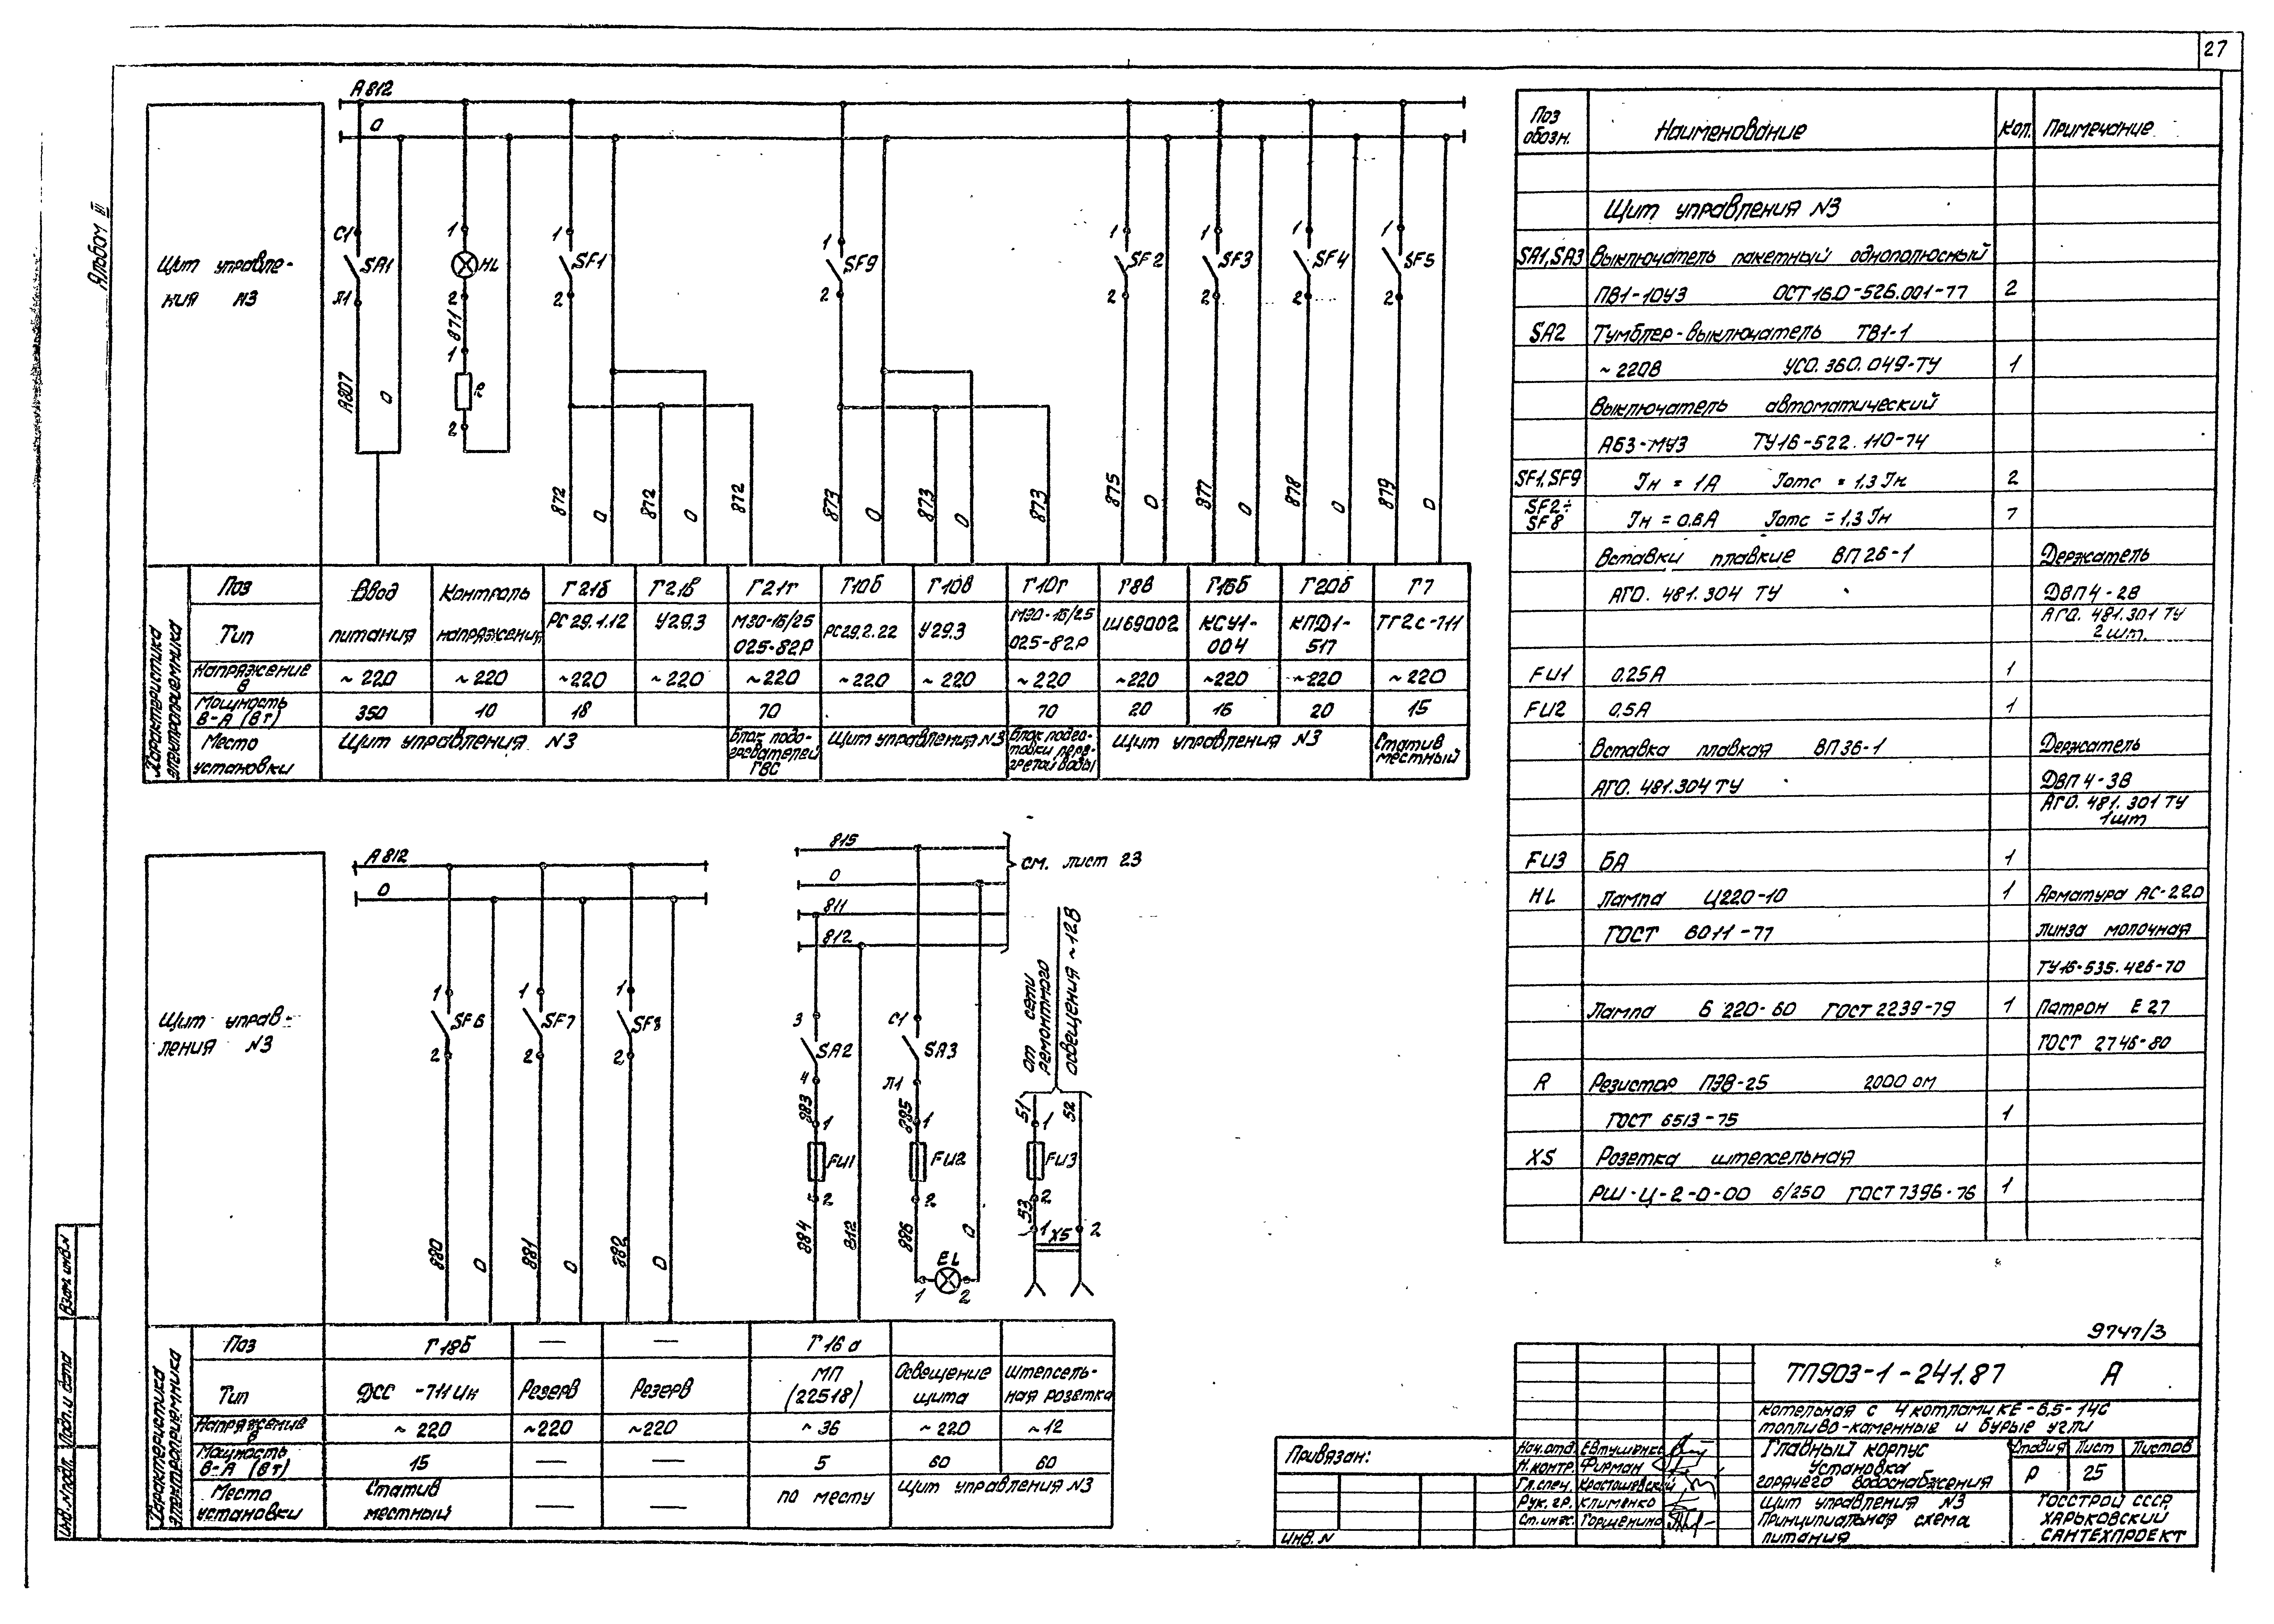 27
Альбом III
А812
0
Щит управле-
ния N3
С1
SA1
Л1
А807
0
1
HL
2
871
1
R
2
1
SF1
2
872
0
872
0
872
1
SF9
2
873
0
873
0
873
1
SF2
2
875
0
1
SF3
2
877
0
1
SF4
2
878
0
1
SF5
2
879
0
Характеристика электроприемника
Поз
Ввод
Контроль
Г21б
Г21в
Г21г
Г10б
Г10в
Г10г
Г8в
Г15б
Г20б
Г7
Тип
питания
напряжения
РС29.1.12
У29.3
МЭО-16/25
025-82Р
РС29.2.22
У29.3
МЭО-16/25
025-82Р
Ш69002
КСУ1-
004
КПД1-
517
ТГ2С-711
Напряжение
В
~220
~220
~220
~220
~220
~220
~220
~220
~220
~220
~220
~220
Мощность
В-А (Вт)
350
10
18
70
70
20
16
20
15
Место
установки
Щит управления N3
Блок подо-
гревателей
ГВС
Щит управления N3
Блок подго-
товки пере-
гретой воды
Щит управления N3
Статив
местный
А812
0
Щит управ-
ления N3
1
SF6
2
880
0
1
SF7
2
881
0
1
SF8
2
882
0
815
0
811
812
см. лист 23
3
SA2
4
883
1
FU1
2
884
812
С1
SA3
Л1
885
1
FU2
2
886
0
EL
1
2
от сети
ремонтного
освещения ~12В
51
52
1
FU3
2
53
1
XS
2
Характеристика электроприемника
Поз
Г18б
—
—
Г16а
Тип
ДСС-711Ин
Резерв
Резерв
МП
(22518)
Освещение
щита
Штепсель-
ная розетка
Напряжение
В
~220
~220
~220
~36
~220
~12
Мощность
В-А (Вт)
15
—
—
5
60
60
Место
установки
Статив
местный
—
—
по месту
Щит управления N3
Поз
обозн.
Наименование
Кол.
Примечание
Щит управления N3
SA1,SA3 Выключатель пакетный однополюсный
ПВ1-10У3 ОСТ16.0-526.001-77 2
SA2 Тумблер-выключатель ТВ1-1
~220В УСО.360.049-ТУ 1
Выключатель автоматический
А63-МУ3 ТУ16-522.110-74
SF1,SF9 Iн = 1А Iотс = 1,3 Iн 2
SF2÷
SF8 Iн = 0,6А Iотс = 1,3 Iн 7
Вставки плавкие ВП2б-1 Держатель
АГО.481.304 ТУ ДВП4-2В
АГО.481.301 ТУ
2шт.
FU1 0.25А 1
FU2 0,5А 1
Вставка плавкая ВП3б-1 Держатель
АГО.481.304 ТУ ДВП4-3В
АГО.481.301 ТУ
1шт
FU3 6А 1
HL Лампа Ц220-10 1 Арматура АС-220
ГОСТ 6011-77 линза молочная
ТУ16-535.426-70
Лампа Б 220-60 ГОСТ 2239-79 1 Патрон Е27
ГОСТ 2746-80
R Резистор ПЭВ-25 2000 Ом
ГОСТ 6513-75 1
XS Розетка штепсельная
РШ-Ц-2-0-00 6/250 ГОСТ 7396-76 1
9747/3
ТП903-1-241.87 А
Котельная с 4 котлами КЕ-6,5-14С
топливо-каменные и бурые угли
Главный корпус
Установка
горячего водоснабжения
Стадия Лист Листов
Р 25
Щит управления N3
Принципиальная схема
питания
ГОССТРОЙ СССР,
ХАРЬКОВСКИЙ
САНТЕХПРОЕКТ
Нач.отд. Евтушенко
Н.контр. Фирман
Гл.спец. Крастошевский
Рук.гр. Клименко
Ст.инж. Горщенина
Привязан:
Инв. N
Взам. инв.N
Подп. и дата
Инв. N подл.